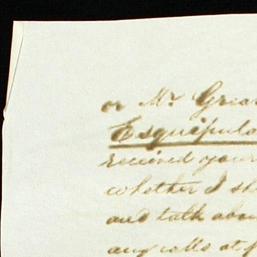 or Mr. Grea
Esquipula
received your
whether I sh
and talk abou
any calls at f